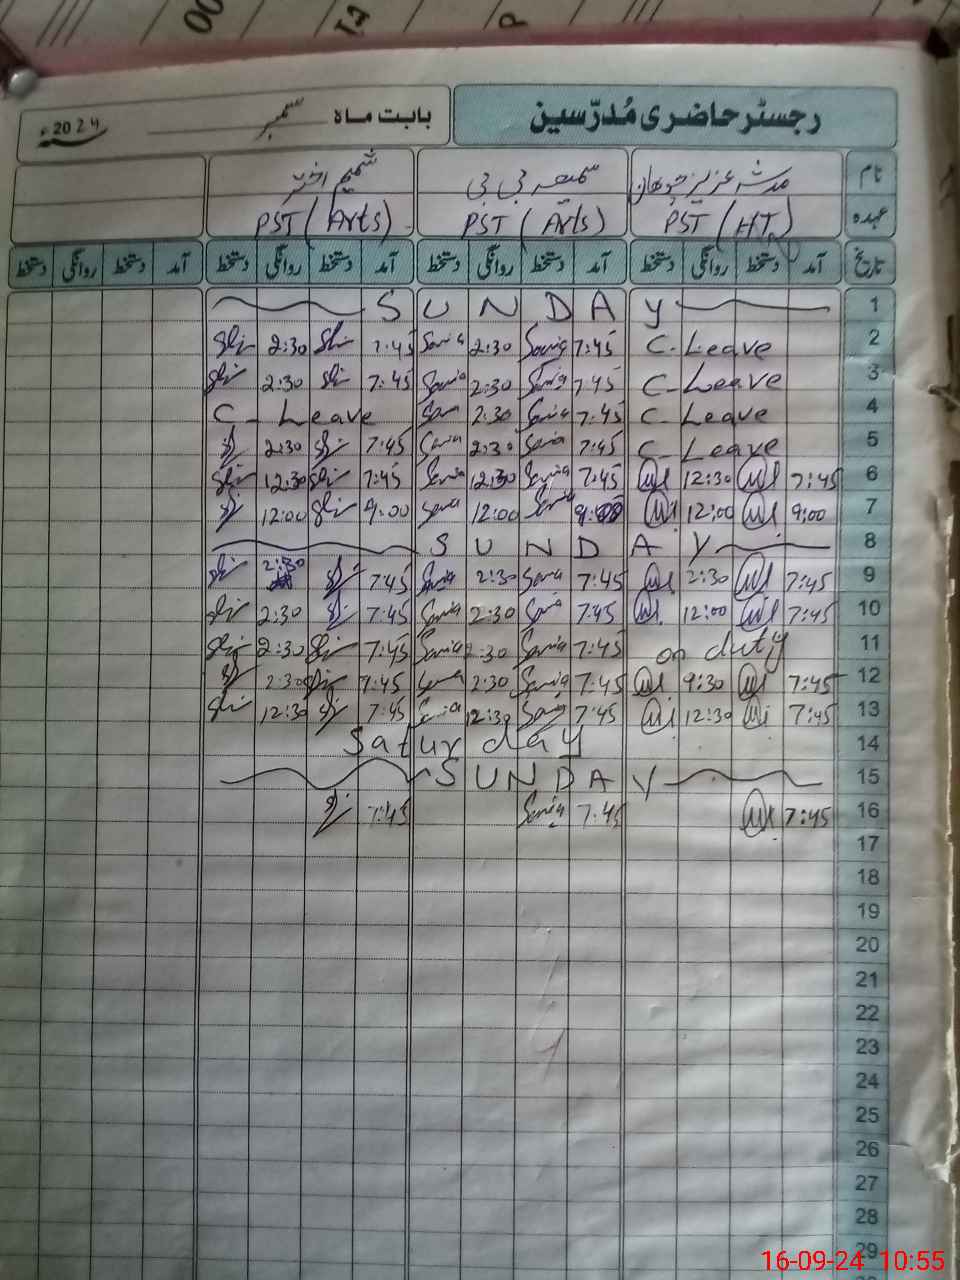 رجسٹر حاضری مُدرّسین
بابت ماہ ستمبر 2024ء
نام مدثر عزیز چوہان سمیعہ بی بی شمیم اختر
عہدہ PST (HT) PST (Arts) PST (Arts)
تاریخ آمد دستخط روانگی دستخط آمد دستخط روانگی دستخط آمد دستخط روانگی دستخط آمد دستخط روانگی دستخط
SUNDAY 1
2:30 7:45 Samia 2:30 Samia 7:45 C-Leave 2
2:30 7:45 Samia 2:30 Samia 7:45 C-Leave 3
C-Leave Samia 2:30 Samia 7:45 C-Leave 4
2:30 7:45 Samia 2:30 Samia 7:45 C-Leave 5
12:30 7:45 Samia 12:30 Samia 7:45 12:30 7:45 6
12:00 9:00 Samia 12:00 Samia 9:00 12:00 9:00 7
SUNDAY 8
2:30 7:45 Samia 2:30 Samia 7:45 2:30 7:45 9
2:30 7:45 Samia 2:30 Samia 7:45 12:00 7:45 10
2:30 7:45 Samia 2:30 Samia 7:45 on duty 11
2:30 7:45 Samia 2:30 Samia 7:45 9:30 7:45 12
12:30 7:45 Samia 12:30 Samia 7:45 12:30 7:45 13
Saturday 14
SUNDAY 15
7:45 Samia 7:45 7:45 16
17
18
19
20
21
22
23
24
25
26
27
28
29
16-09-24 10:55